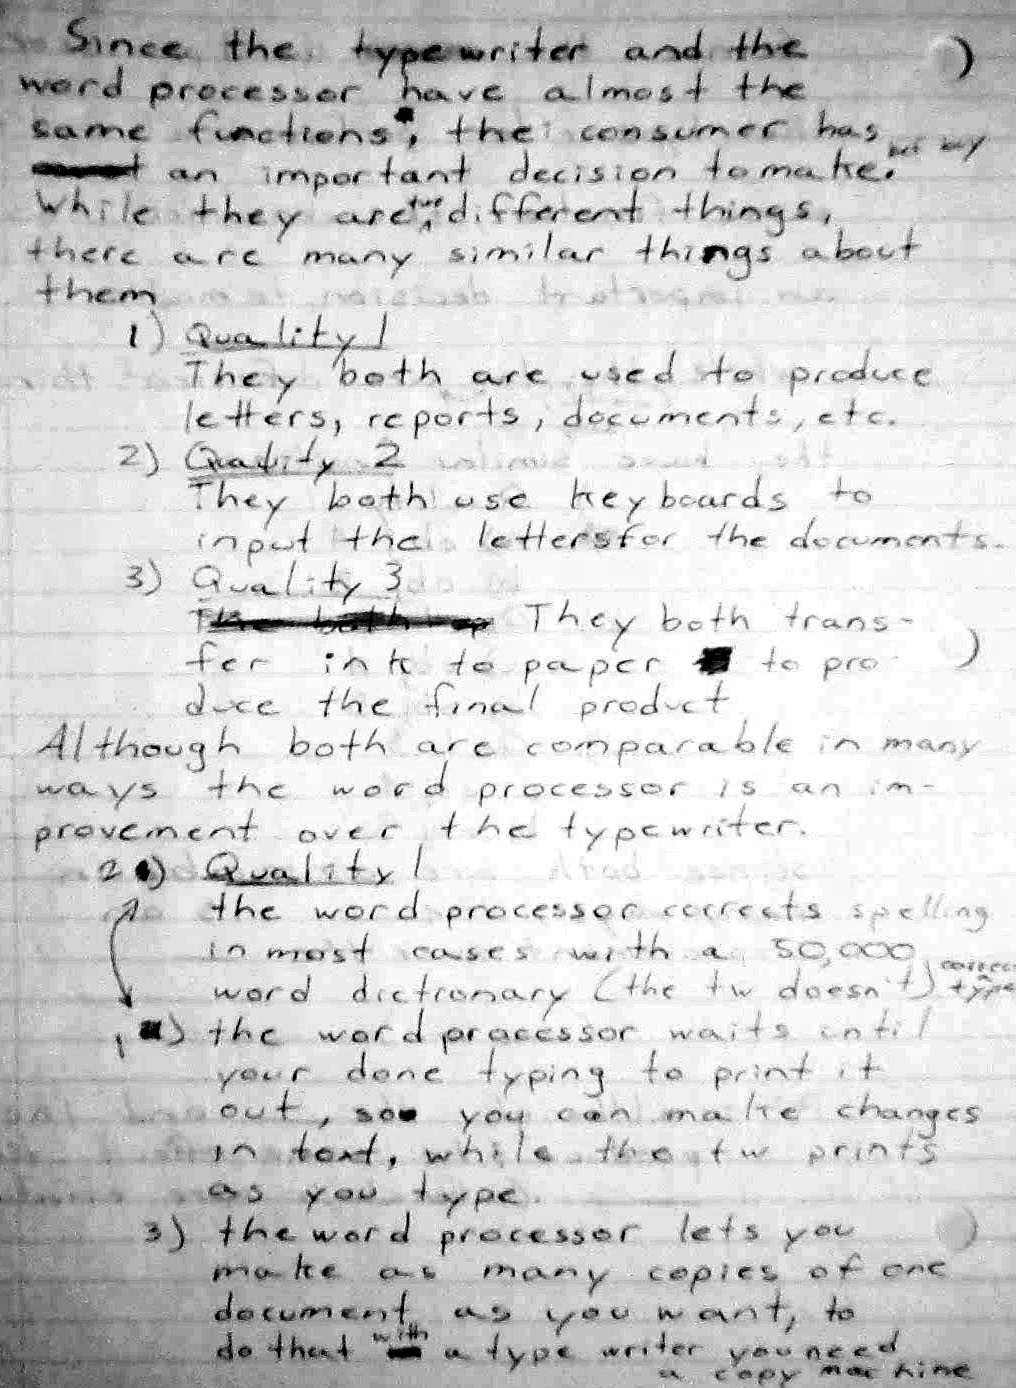 Since the typewriter and the
word processor have almost the
same functions, the consumer has
an important decision to make.
While they are two different things,
there are many similar things about
them
1) Quality 1
They both are used to produce
letters, reports, documents, etc.
2) Quality 2
They both use keyboards to
input the letters for the documents.
3) Quality 3
They both trans-
fer ink to paper to pro
duce the final product
Although both are comparable in many
ways the word processor is an im-
provement over the typewriter.
2) Quality 1
the word processor corrects spelling
in most cases with a 50,000
word dictronary (the tw doesn't)
1) the word processor waits until
your done typing to print it
out, so you can make changes
in text, while the tw prints
as you type.
3) the word processor lets you
make as many copies of one
document as you want, to
do that with a type writer you need
a copy machine